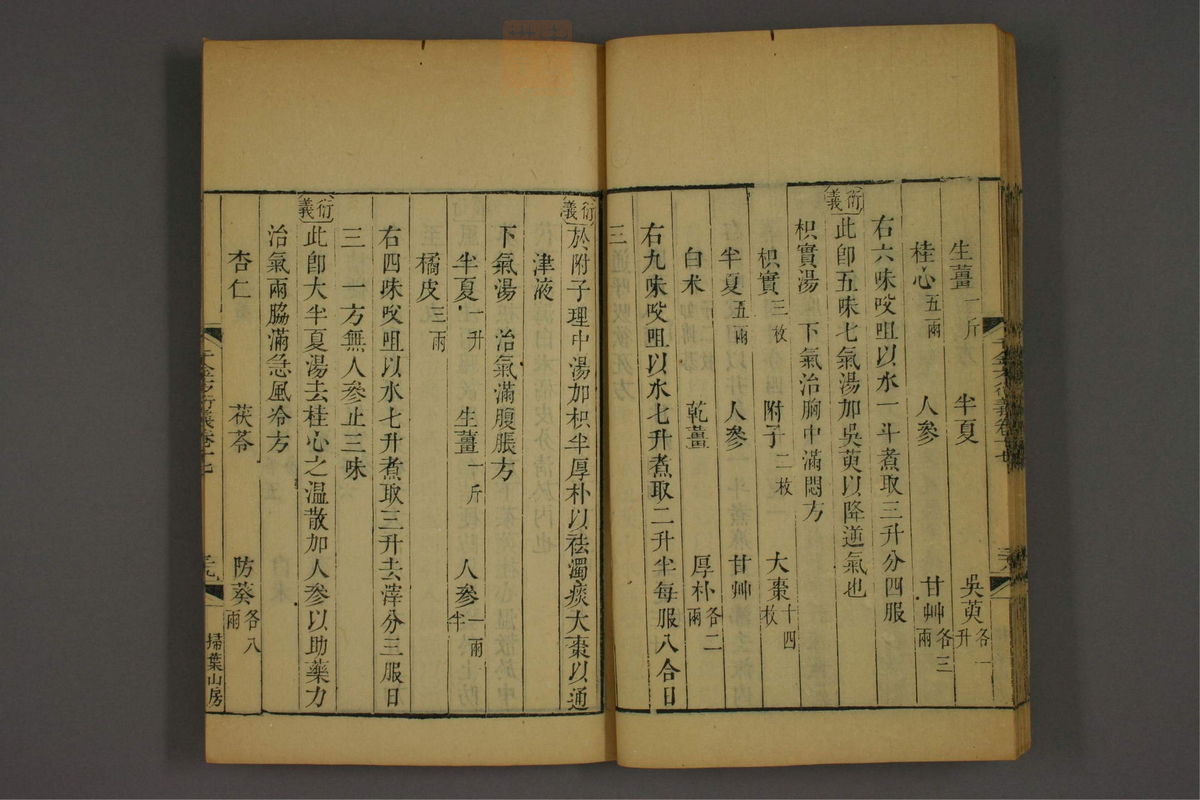 生薑一斤　半夏　吳萸各一升
桂心五兩　人參　甘艸各三兩
右六味㕮咀以水一斗煮取三升分四服
衍義此卽五味七氣湯加吳萸以降逆氣也
枳實湯　下氣治胸中滿悶方
枳實三枚　附子二枚　大棗十四枚
半夏五兩　人參　甘艸
白朮　乾薑　厚朴各二兩
右九味㕮咀以水七升煮取二升半每服八合日
三
衍義於附子理中湯加枳半厚朴以祛濁痰大棗以通
津液
下氣湯　治氣滿腹脹方
半夏一升　生薑一斤　人參一兩半
橘皮三兩
右四味㕮咀以水七升煮取三升去滓分三服日
三一方無人參止三味
衍義此卽大半夏湯去桂心之温散加人參以助藥力
治氣兩脇滿急風冷方
杏仁　茯苓　防葵各八兩
千金方衍義卷十七　掃葉山房